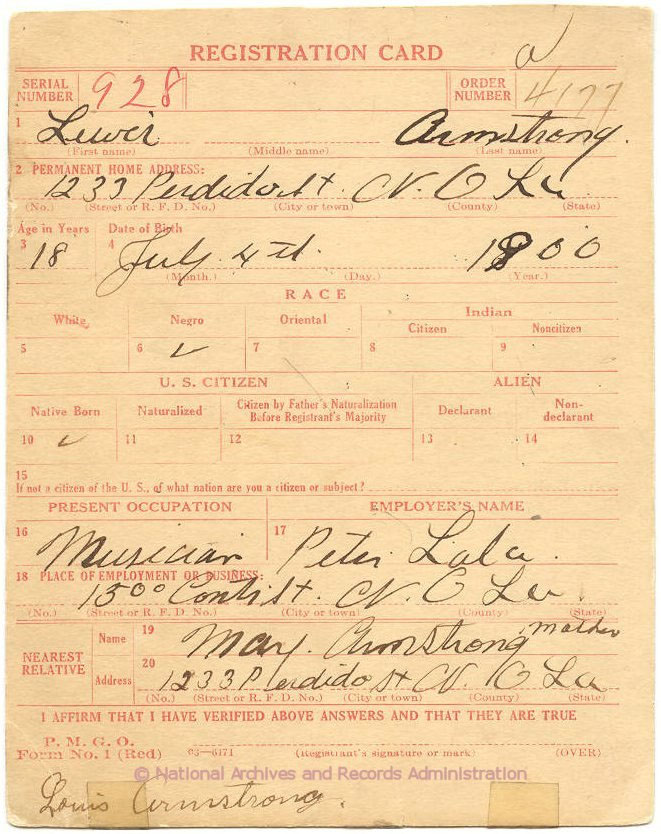 REGISTRATION CARD a
SERIAL NUMBER 928 ORDER NUMBER 4177
1 Lewis Armstrong.
(First name) (Middle name) (Last name)
2 PERMANENT HOME ADDRESS:
1233 Perdido St. N. O La
(No.) (Street or R. F. D. No.) (City or town) (County) (State)
Age in Years Date of Birth
3 18 4 July 4th 1900
(Month.) (Day.) (Year.)
RACE
White Negro Oriental Indian
Citizen Noncitizen
5 6 ✓ 7 8 9
U. S. CITIZEN ALIEN
Native Born Naturalized Citizen by Father's Naturalization Before Registrant's Majority Declarant Non-declarant
10 ✓ 11 12 13 14
15
If not a citizen of the U. S., of what nation are you a citizen or subject?
PRESENT OCCUPATION EMPLOYER'S NAME
16 Musician 17 Peter Lala.
18 PLACE OF EMPLOYMENT OR BUSINESS:
1500 Conti St. N. O La.
(No.) (Street or R. F. D. No.) (City or town) (County) (State)
NEAREST RELATIVE
Name 19 May. Armstrong mother
Address 20 1233 Perdido St N. O La
(No.) (Street or R. F. D. No.) (City or town) (County) (State)
I AFFIRM THAT I HAVE VERIFIED ABOVE ANSWERS AND THAT THEY ARE TRUE
P. M. G. O.
Form No. 1 (Red) 03—6171 (Registrant's signature or mark) (OVER)
© National Archives and Records Administration
Louis Armstrong.